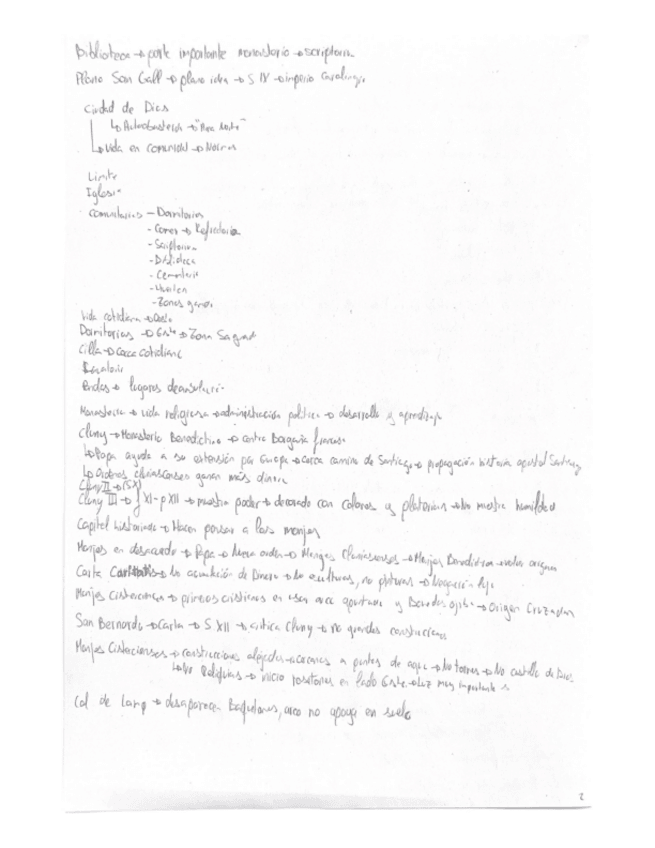 Biblioteca → parte importante monasterio → scriptoria
Plano San Gall → plano idea → S IX → imperio Carolingi.
Ciudad de Dios
↳ Autoabastecía →
↳ Vida en comunidad → Normas
Limite
Iglesia
comunitarios - Dormitorios
- Comer → Refectorio
- Scriptorium
- Biblioteca
- Cementerio
- Huerta
- Zonas
Vida cotidiana → Oeste
Dormitorios → Este → Zona Sagrad
Cilla → Cocca cotidiana
→ lugares
Monasterio → vida religiosa → administración política → desarrollo y aprendizaje
Cluny → Monasterio Benedictino → centro Borgoña francesa
↳ Papa ayuda a su extensión por Europa → cerca camino de Santiago → propagación historia apostol Santiago
↳ Ordenes cluniascenses ganan más dinero
Cluny II → (SX)
Cluny III → } XI-pXII → muestra poder → decorado con colores y → No muestra humildad
Capitel historiado → Hacen pensar a los monjes
Monjes en desacuerdo → Papa → Nueva orden → Monjes → Monjes → volver origen
Carta Caritatis → No acumulación de Dinero → No esculturas, no pinturas → Negación lujo
Monjes cistercienses → primeros cristianos en usar arco apuntado y Bovedas ojivas → Origen Cruzadas
San Bernardo → Carta → S. XII → critica Cluny → No grandes construcciones
Monjes Cistercienses → construcciones alejadas → cercanas a puntos de agua → No torres → No castillo de Dios
↳ No Reliquias → inicio rosetones en lado Oeste → Luz muy importante
Col de → desaparecen Baquetones, arco no apoya en suelo
2